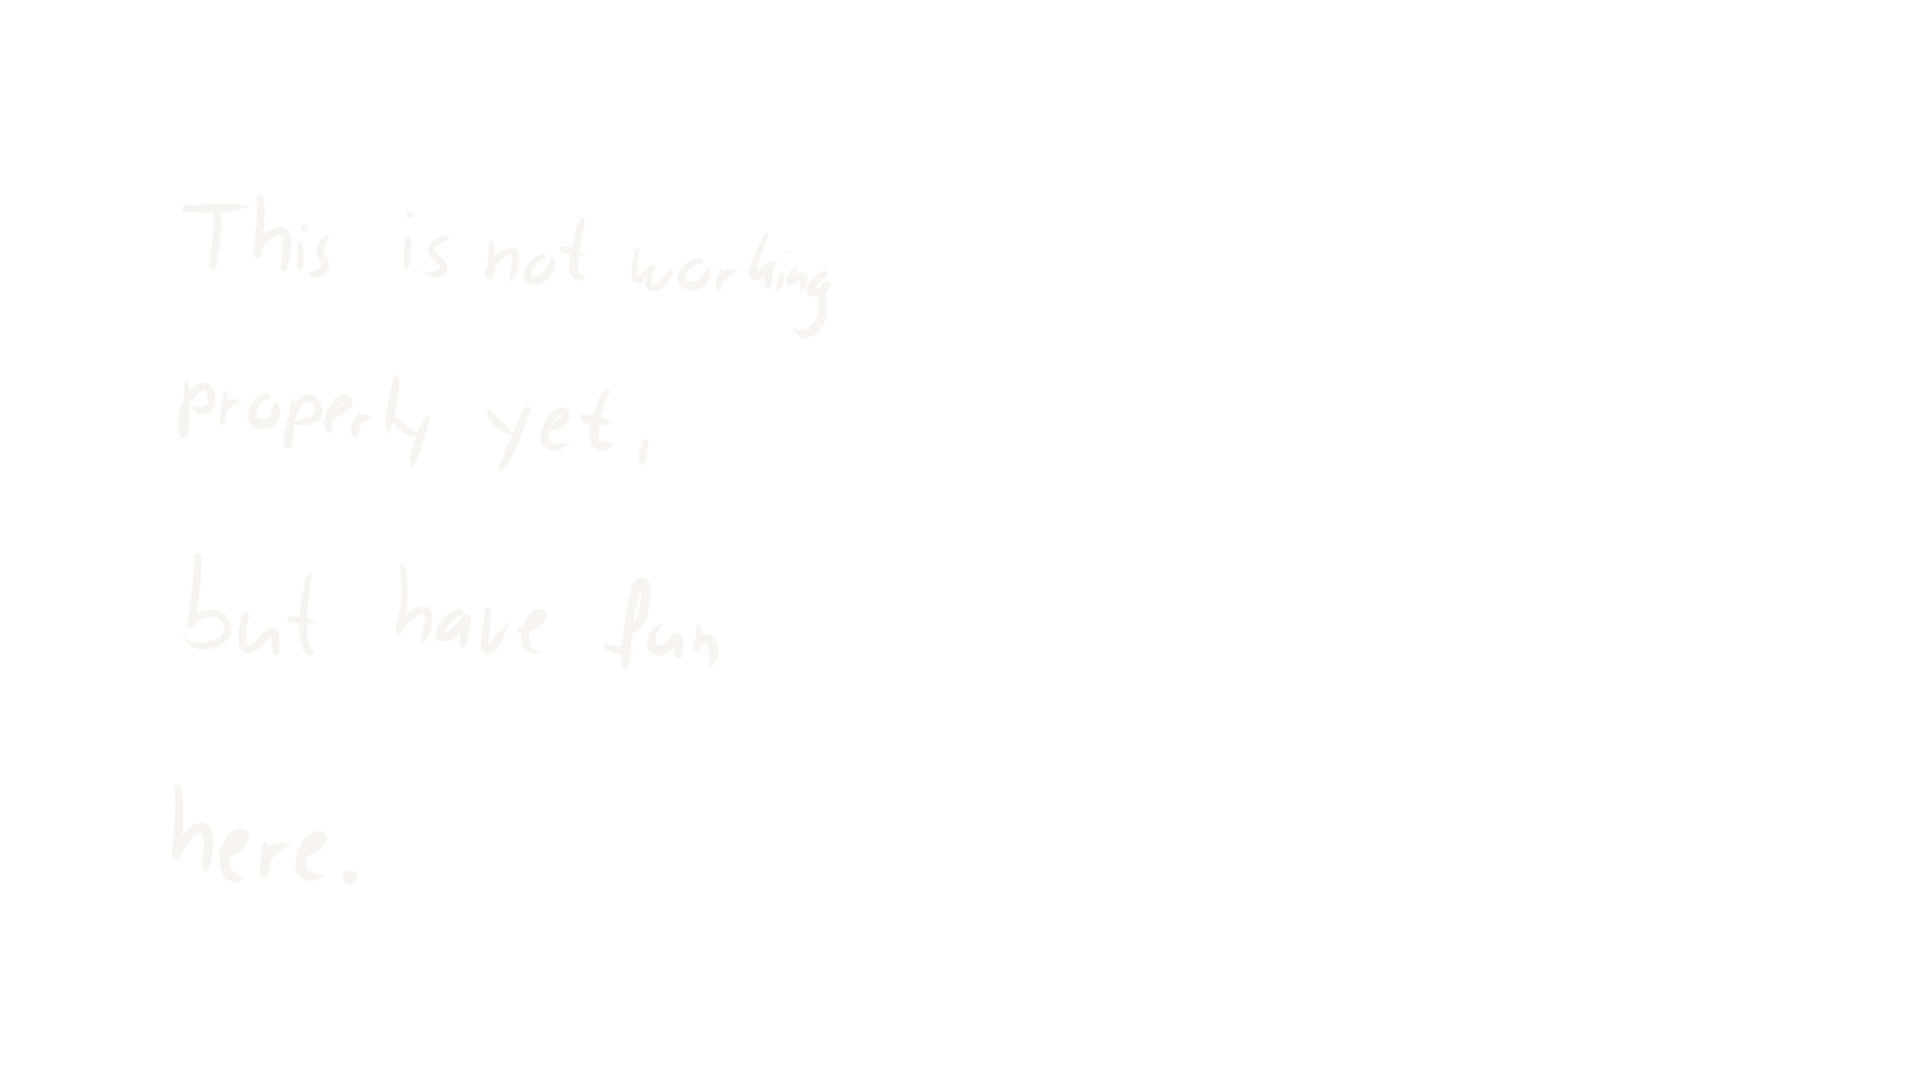 This is not working
properly yet,
but have fun
here.